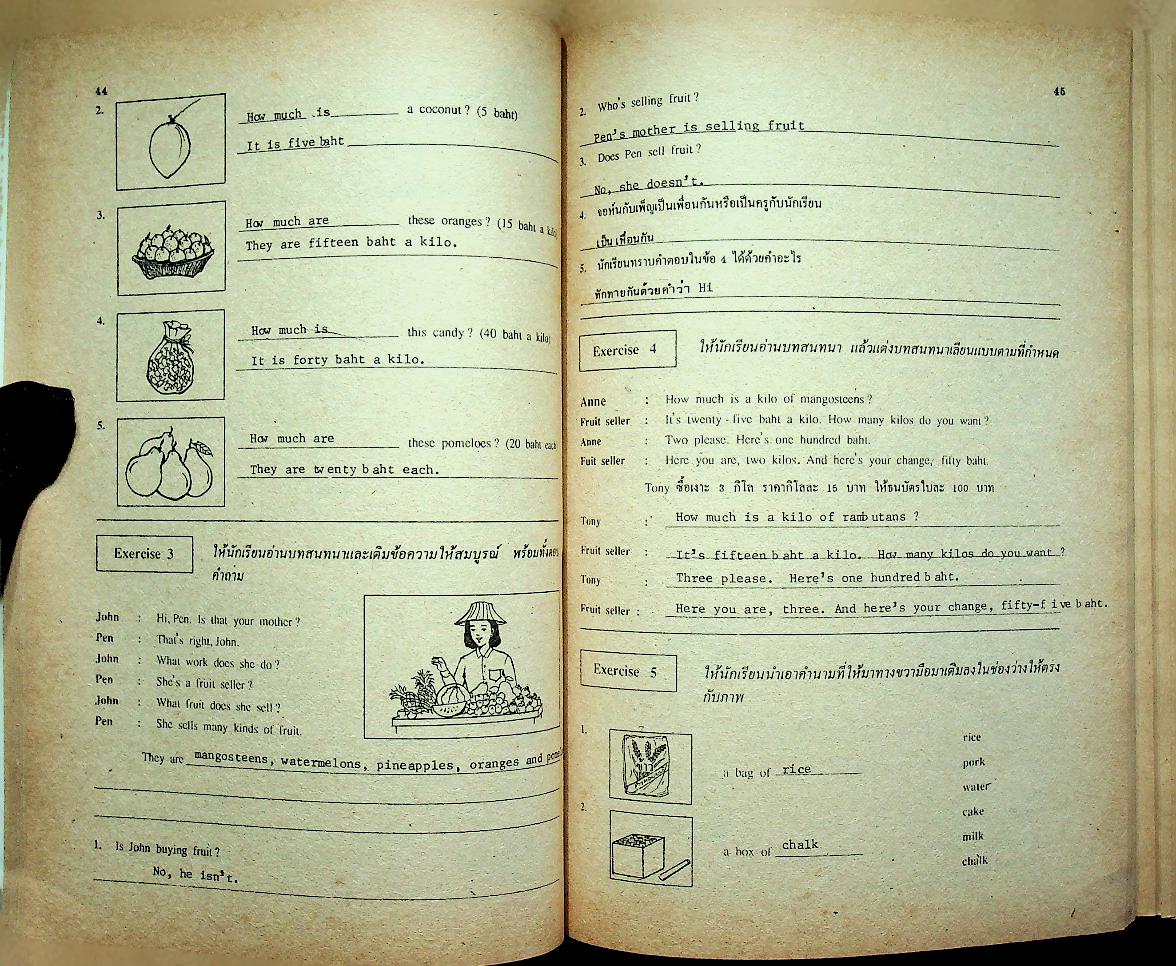 44
2. How much is a coconut? (5 baht)
It is five baht
3. How much are these oranges? (15 baht a kilo)
They are fifteen baht a kilo.
4. How much is this candy? (40 baht a kilo)
It is forty baht a kilo.
5. How much are these pomeloes? (20 baht each
They are twenty baht each.
Exercise 3 ให้นักเรียนอ่านบทสนทนาและเติมข้อความให้สมบูรณ์ พร้อมทั้งตอบ
คำถาม
John : Hi, Pen. Is that your mother?
Pen : That's right, John.
John : What work does she do?
Pen : She's a fruit seller?
John : What fruit does she sell?
Pen : She sells many kinds of fruit.
They are mangosteens, watermelons, pineapples, oranges and
1. Is John buying fruit?
No, he isn't.
45
2. Who's selling fruit?
Pen's mother is selling fruit
3. Does Pen sell fruit?
No, she doesn't.
4. จอห์นกับเพ็ญเป็นเพื่อนกันหรือเป็นครูกับนักเรียน
เป็นเพื่อนกัน
5. นักเรียนทราบคำตอบในข้อ 4 ได้ด้วยคำอะไร
ทักทายกันด้วยคำว่า Hi
Exercise 4 ให้นักเรียนอ่านบทสนทนา แล้วแต่งบทสนทนาเลียนแบบตามที่กำหนด
Anne : How much is a kilo of mangosteens?
Fruit seller : It's twenty-five baht a kilo. How many kilos do you want?
Anne : Two please. Here's one hundred baht.
Fuit seller : Here you are, two kilos. And here's your change, fifty baht.
Tony ซื้อเงาะ 3 กิโล ราคากิโลละ 15 บาท ให้ธนบัตรใบละ 100 บาท
Tony : How much is a kilo of rambutans ?
Fruit seller : It's fifteen baht a kilo. How many kilos do you want ?
Tony : Three please. Here's one hundred baht.
Fruit seller : Here you are, three. And here's your change, fifty-five baht.
Exercise 5 ให้นักเรียนนำเอาคำนามที่ให้มาทางขวามือมาเติมลงในช่องว่างให้ตรง
กับภาพ
1. a bag of rice
2. a box of chalk
rice
pork
water
cake
milk
chalk